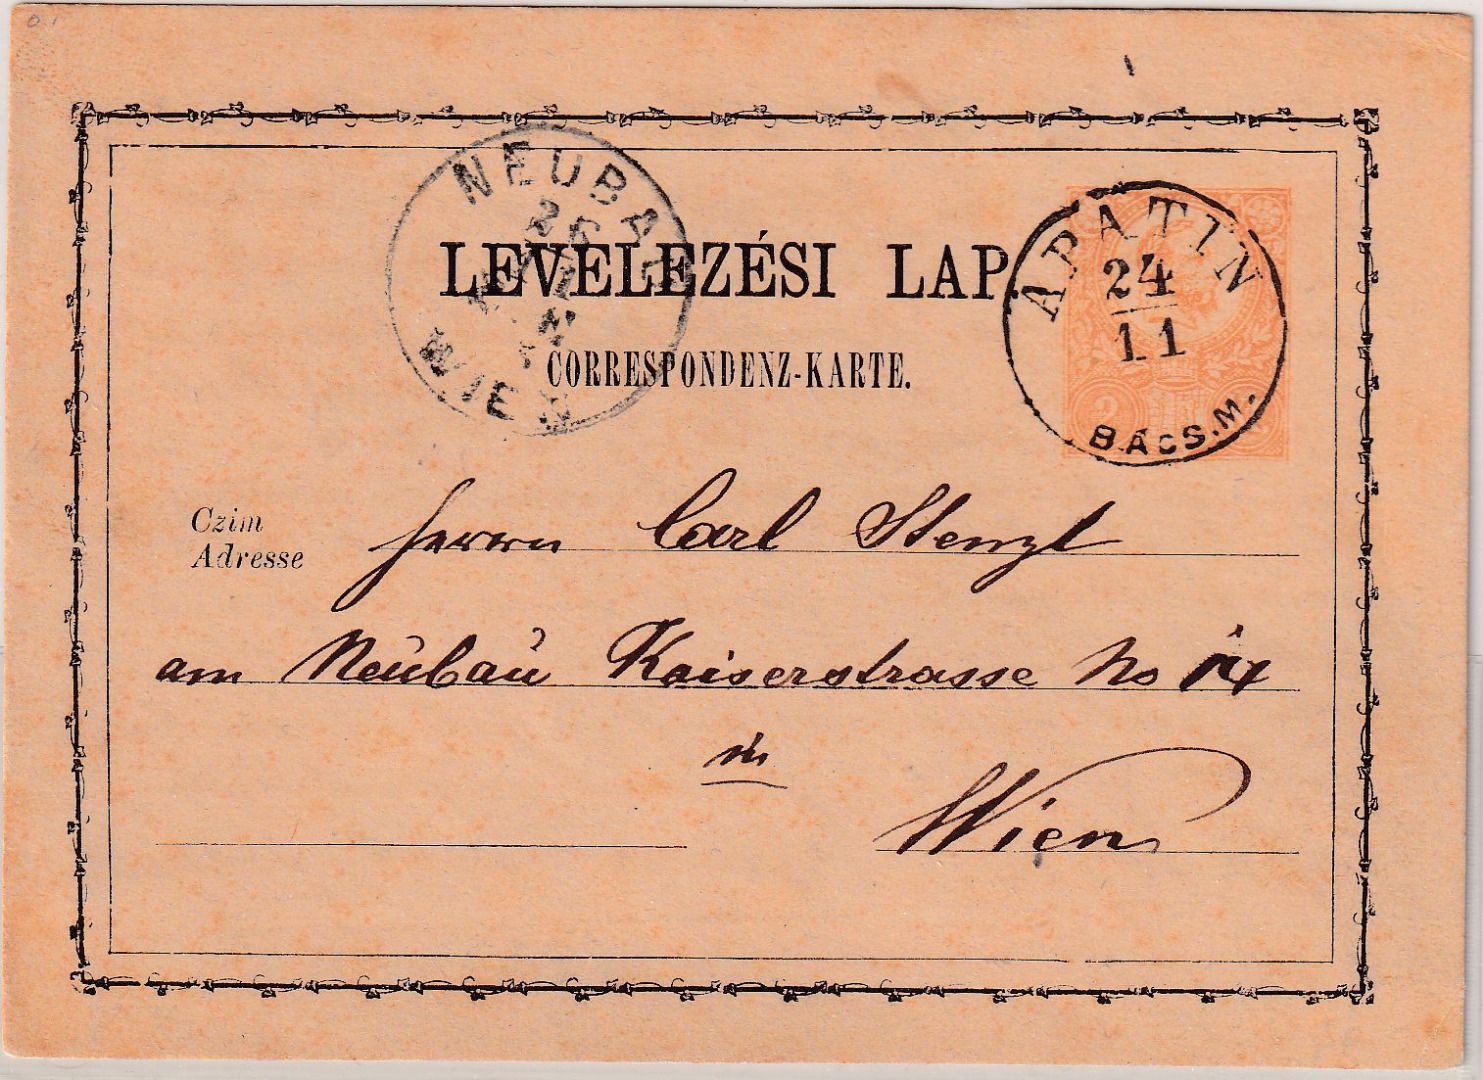 NEUBAU
26
WIEN
LEVELEZÉSI LAP.
CORRESPONDENZ-KARTE.
APATIN
24
11
BÁCS.M.
2
Czim
Adresse
Herrn Carl Stenzl
am Neubau Kaiserstrasse No 14
in
Wien